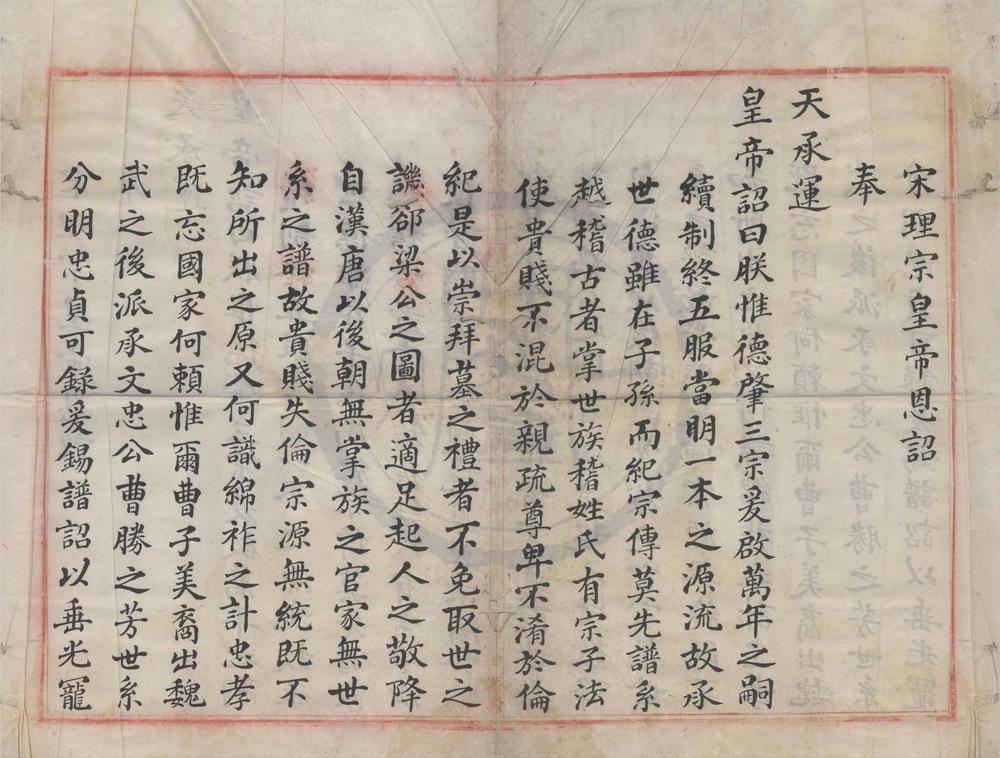 宋理宗皇帝恩詔
奉
天承運
皇帝詔曰朕惟德肇三宗爰啟萬年之嗣
續制終五服當明一本之源流故承
世德雖在子孫而紀宗傳莫先譜系
越稽古者掌世族稽姓氏有宗子法
使貴賤不混於親疏尊卑不淆於倫
紀是以崇拜墓之禮者不免取世之
譏郤梁公之圖者適足起人之敬降
自漢唐以後朝無掌族之官家無世
系之譜故貴賤失倫宗源無統既不
知所出之原又何識綿祚之計忠孝
既忘國家何頼惟爾曹子美裔出魏
武之後派承文忠公曹勝之芳世系
分明忠貞可録爰錫譜詔以垂光寵